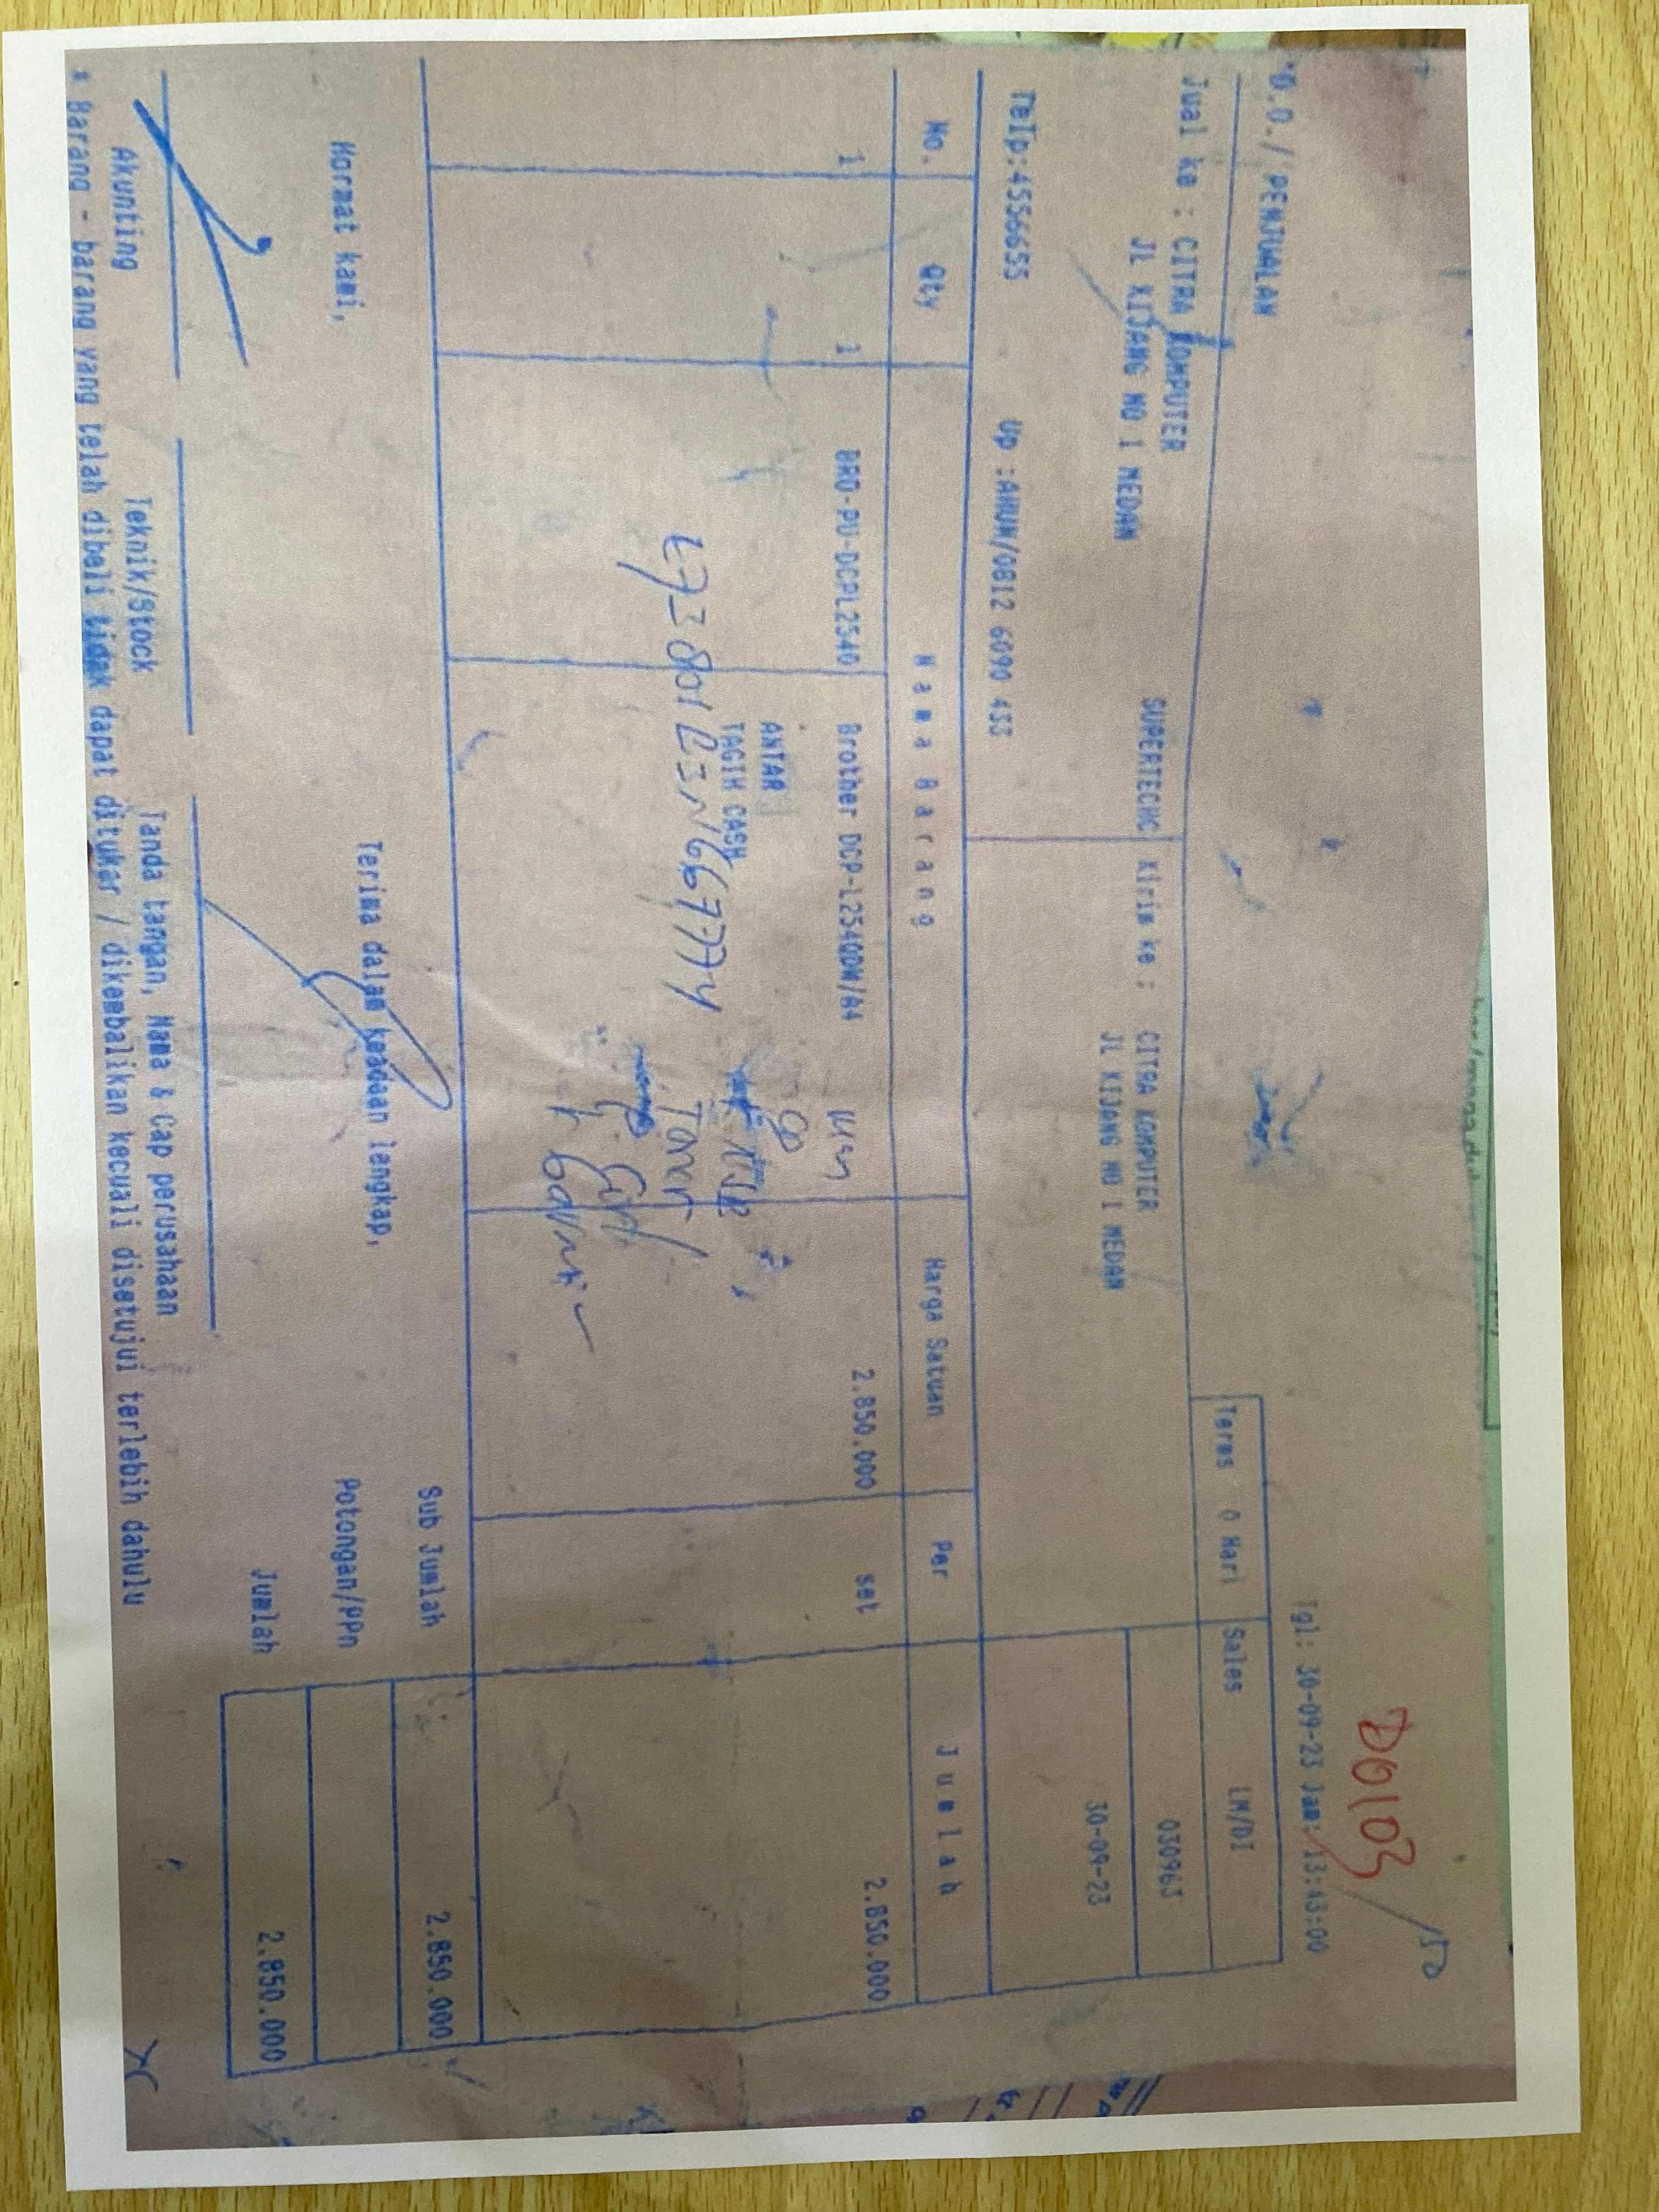 D0103
*D.O.// PENJUALAN
Tgl: 30-09-23 Jam: 13:43:00
Terms 0 Hari
Sales LM/DI
Jual ke : CITRA KOMPUTER
JL KIJANG NO 1 MEDAN
SUPERTECHC
Kirim ke : CITRA KOMPUTER
JL KIJANG NO 1 MEDAN
030963
30-09-23
Telp:4556655 Up :AHUN/0812 6090 433
No. Qty Nama Barang Harga Satuan Per Jumlah
1 1 BRO-PU-DCPL2540 Brother DCP-L2540DW/A4 2.850.000 set 2.850.000
ANTAR
TAGIH CASH
Toner
Sub Jumlah 2.850.000
Hormat kami, Terima dalam keadaan lengkap,
Potongan/PPn
Jumlah 2.850.000
Akunting Teknik/Stock Tanda tangan, Nama & Cap perusahaan
* Barang - barang yang telah dibeli tidak dapat ditukar / dikembalikan kecuali disetujui terlebih dahulu